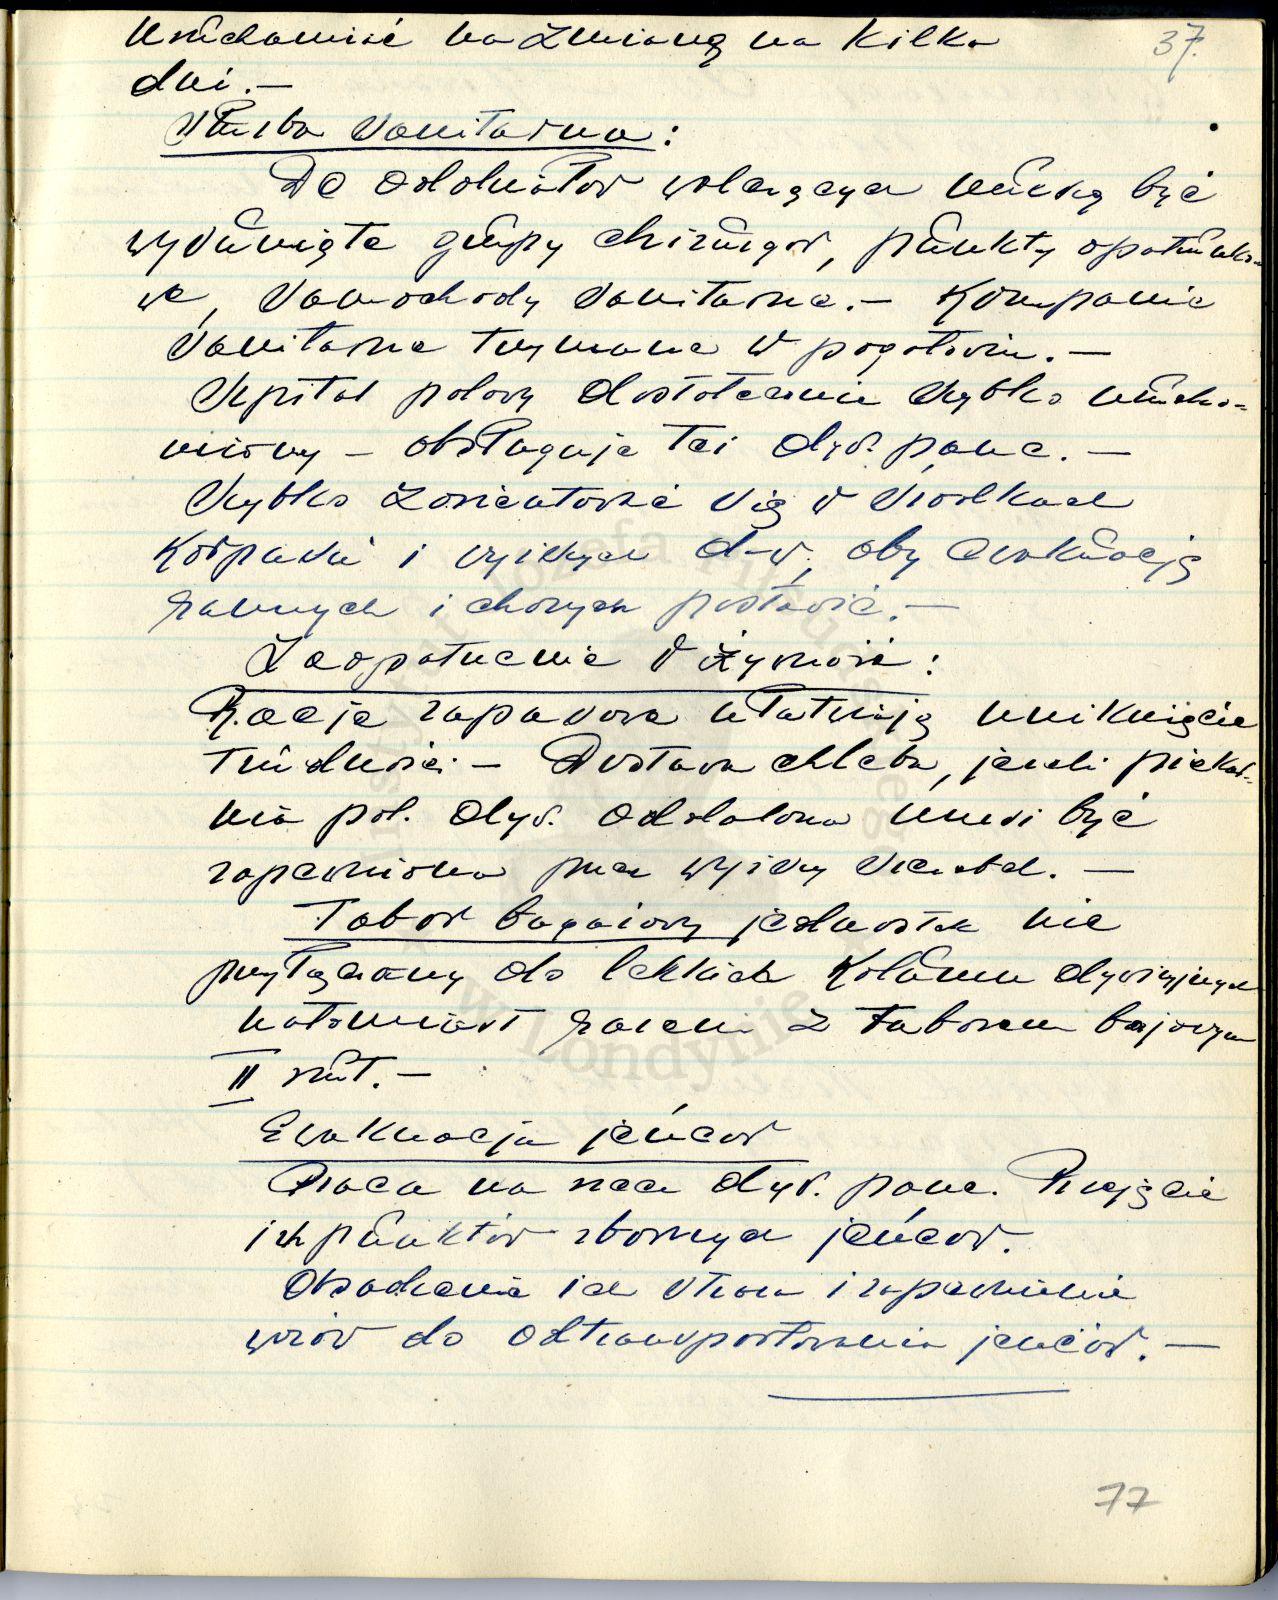 uruchamiać na zmianę na kilka
37.
dni.—
Służba Sanitarna:
Do oddziałów walczących muszą być
wysunięte grupy chirurgów, punkty opatrunko-
we, samochody sanitarne.— Kompanie
sanitarne trzymane w pogotowiu.—
Szpital polowy dostatecznie szybko urucho=
miony — obsługuje też dyw. panc.—
Szybko zorientować się w środkach
Korpusu i wyższych d-w, aby ewakuację
rannych i chorych postawić.—
Zaopatrzenie w żywność:
Racje zapasowe ułatwiają uniknięcie
trudności — Dostawa chleba, jeżeli piekar=
nia pol. dyw. oddalona musi być
zapewniona przez wyższy szczebel.—
Tabor bagażowy jednostek nie
przyłączany do lekkich kolumn dywizyjnych
natomiast razem z taborem bojowym
II rzut.—
Ewakuacja jeńców
Praca na rzecz dyw. panc. Przejęcie
ich punktów zbornych jeńców.
Obsadzenie ich strażą i zapewnienie
wozów do odtransportowania jeńców.—
77
w Londynie